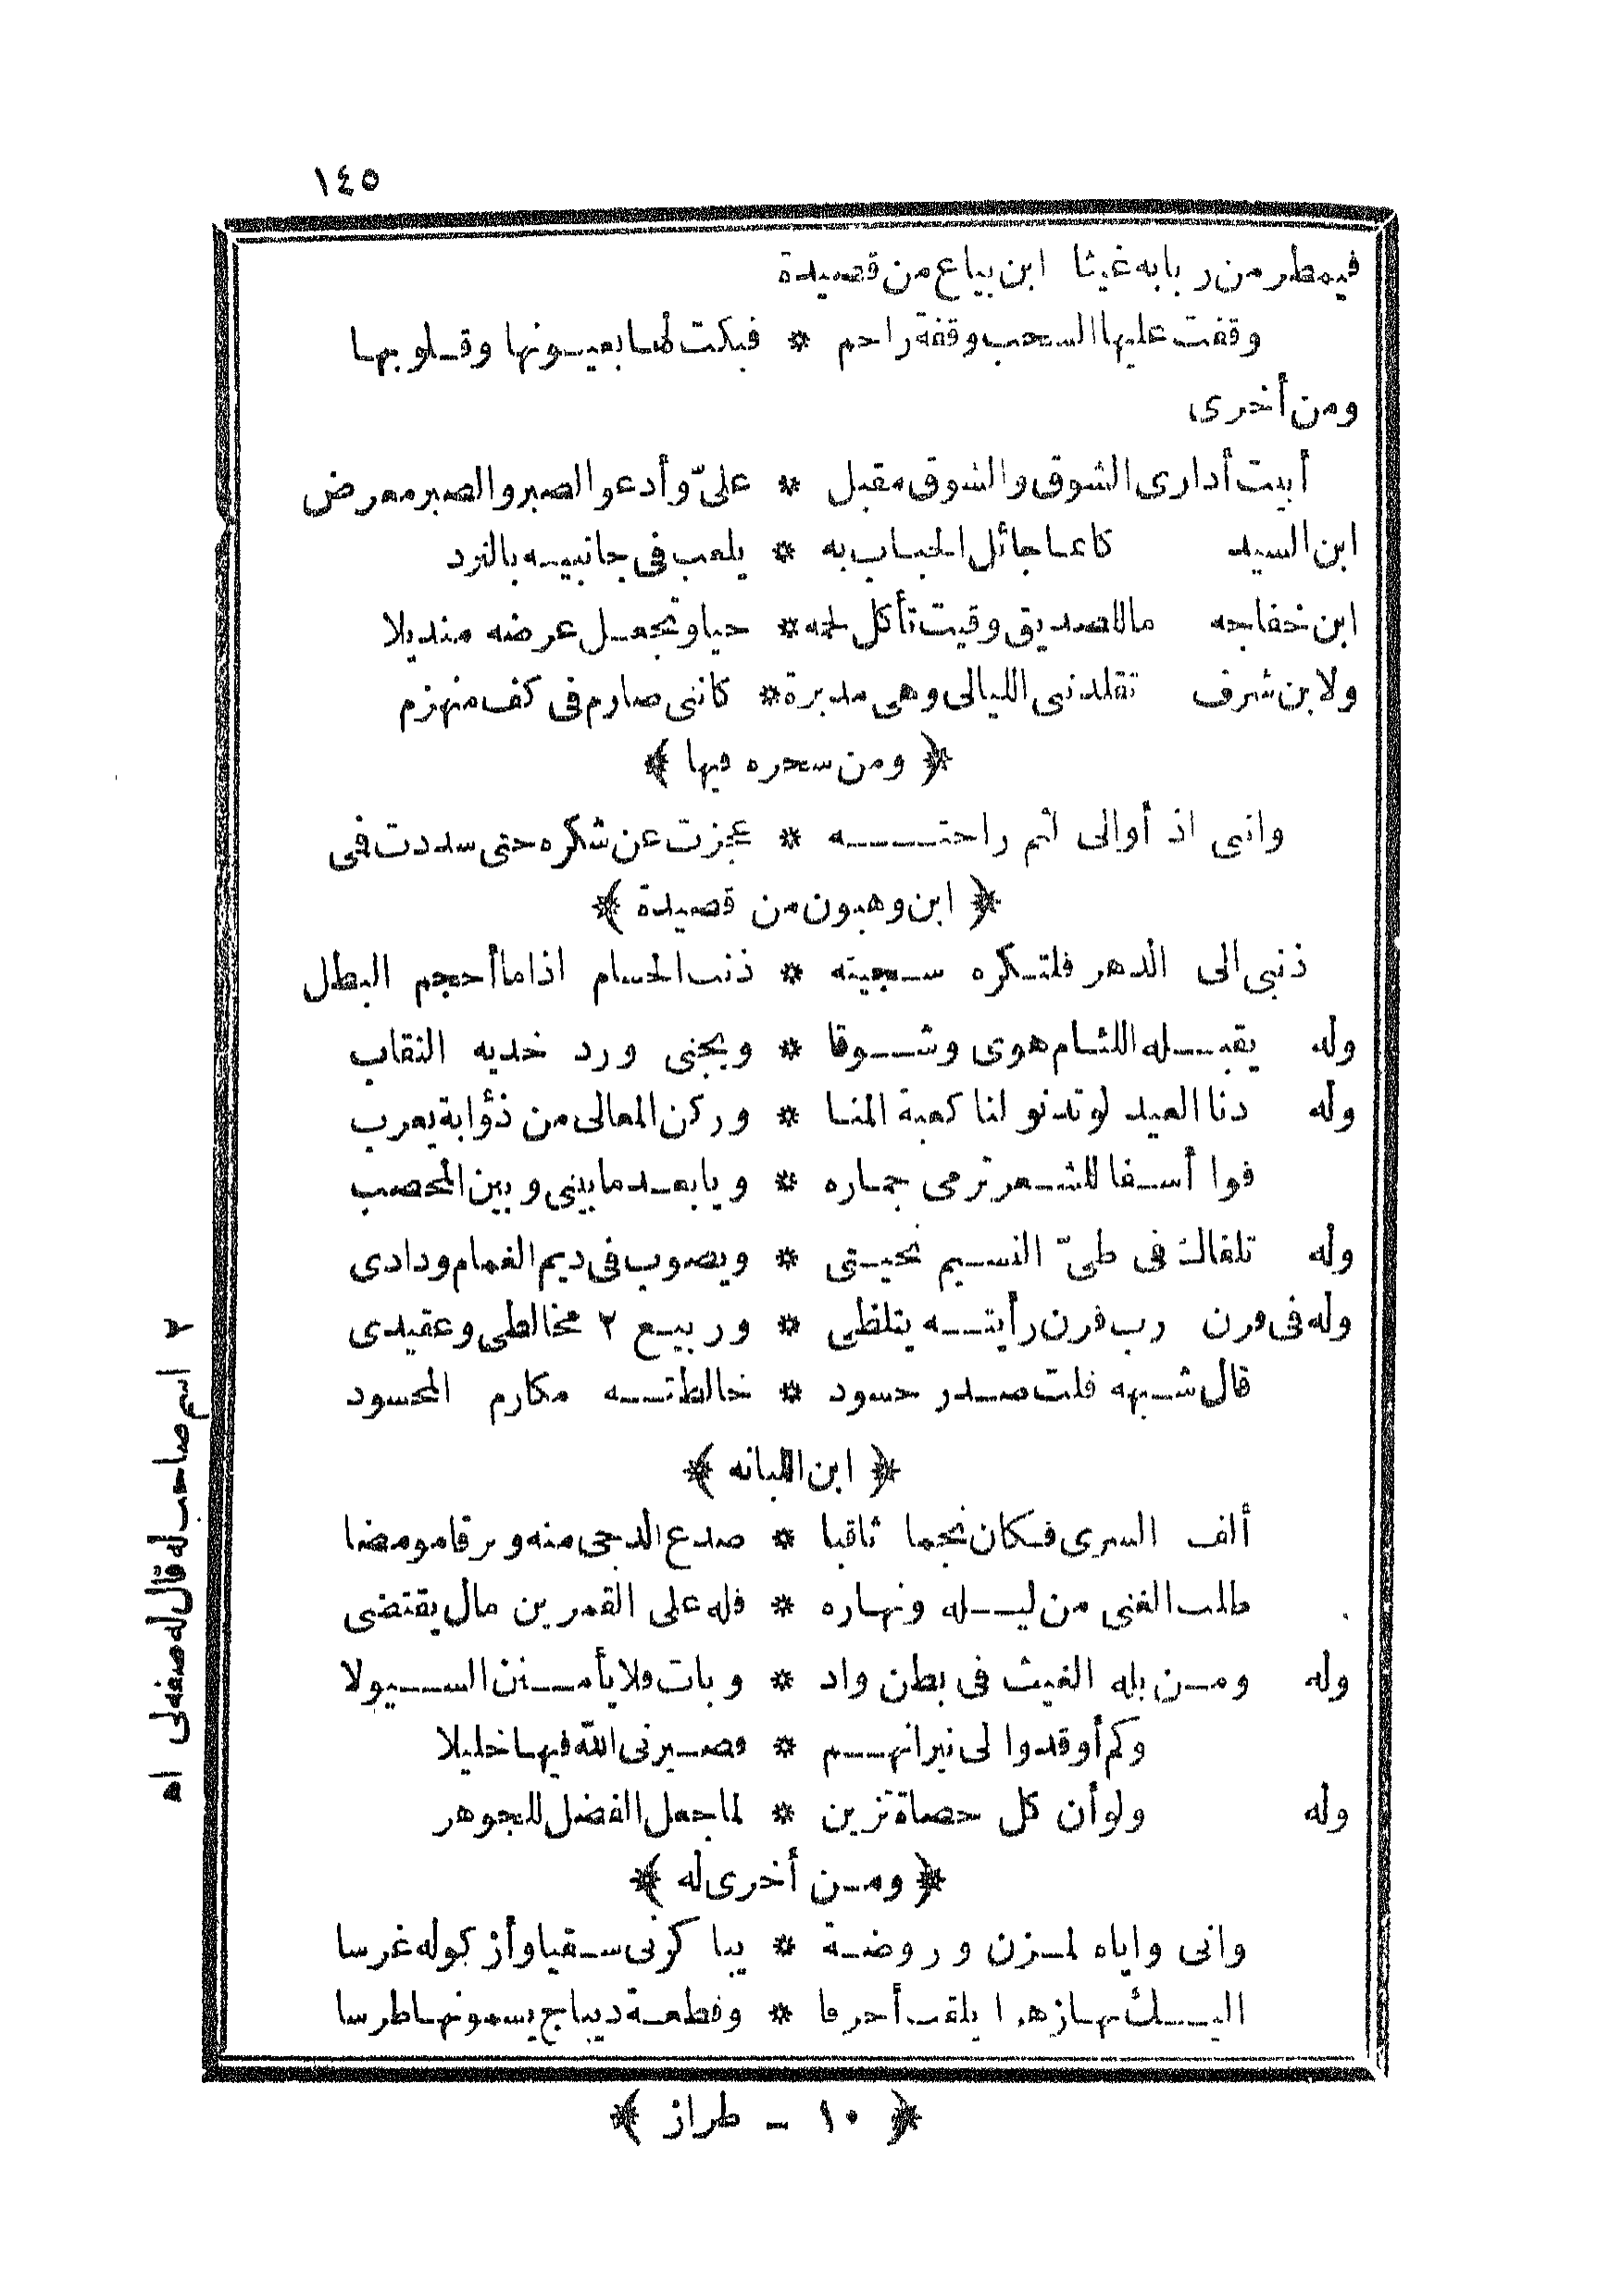 ١٤٥
فيمطر من ربابه غيثا ابن بياع من قصيدة
وقفت عليها السحب وقفة راحم * فبكت لها بعيونها وقلوبها
ومن أخرى
أبيت أدارى الشوق والشوق مقبل * علىّ وأدعو الصبر والصبر معرض
ابن السيد كانما جائل الحباب به * يلعب فى جانبيه بالنرد
ابن خفاجه ماللصديق وقيت تأكل لحمه * حيا وتجعل عرضه منديلا
ولابن شرف تقلدنى الليالى وهى مدبرة * كاننى صارم فى كف منهزم
﴿ ومن سحره فيها ﴾
واننى اذ أوالى لثم راحته * عجزت عن شكره حتى سددت فمى
﴿ ابن وهبون من قصيدة ﴾
ذنبى الى الدهر فلتكره سجيته * ذنب الحسام اذا ما أحجم البطل
وله يقبله اللثام هوى وشوقا * ويجنى ورد خديه النقاب
وله دنا العيد لو تدنو لنا كعبة المنا * وركن المعالى من ذؤابة يعرب
فوا أسفا للشعر ترمى جماره * ويا بعد ما بينى وبين المحصب
وله تلقاك فى طىّ النسيم تحيتى * ويصوب فى ديم الغمام ودادى
وله فى فرن رب فرن رأيته يتلظى * وربيع ٢ مخالطى وعقيدى
قال شبهه فلت صدر حسود * خالطته مكارم المحسود
﴿ ابن اللبانه ﴾
ألف السرى فكان نجما ثاقبا * صدع الدجى منه وبرقا مومضا
طلب الغنى من ليله ونهاره * فله على القمرين مال يقتضى
وله ومن بله الغيث فى بطن واد * وبات فلا يأمنن السيولا
وكم أوقدوا لى نيرانهم * فصيرنى الله فيها خليلا
وله ولو أن كل حصاة تزين * لما جعل الفضل للجوهر
﴿ ومن أخرى له ﴾
وانى واياه لمزن وروضة * يباكرنى سقيا وأزكو له غرسا
اليك بها زهرا يلقب أحرفا * وقطعة ديباج يسمونها طرسا
﴿ ١٠ - طراز ﴾
٢ اسم صاحب له قال له صفه لى اه